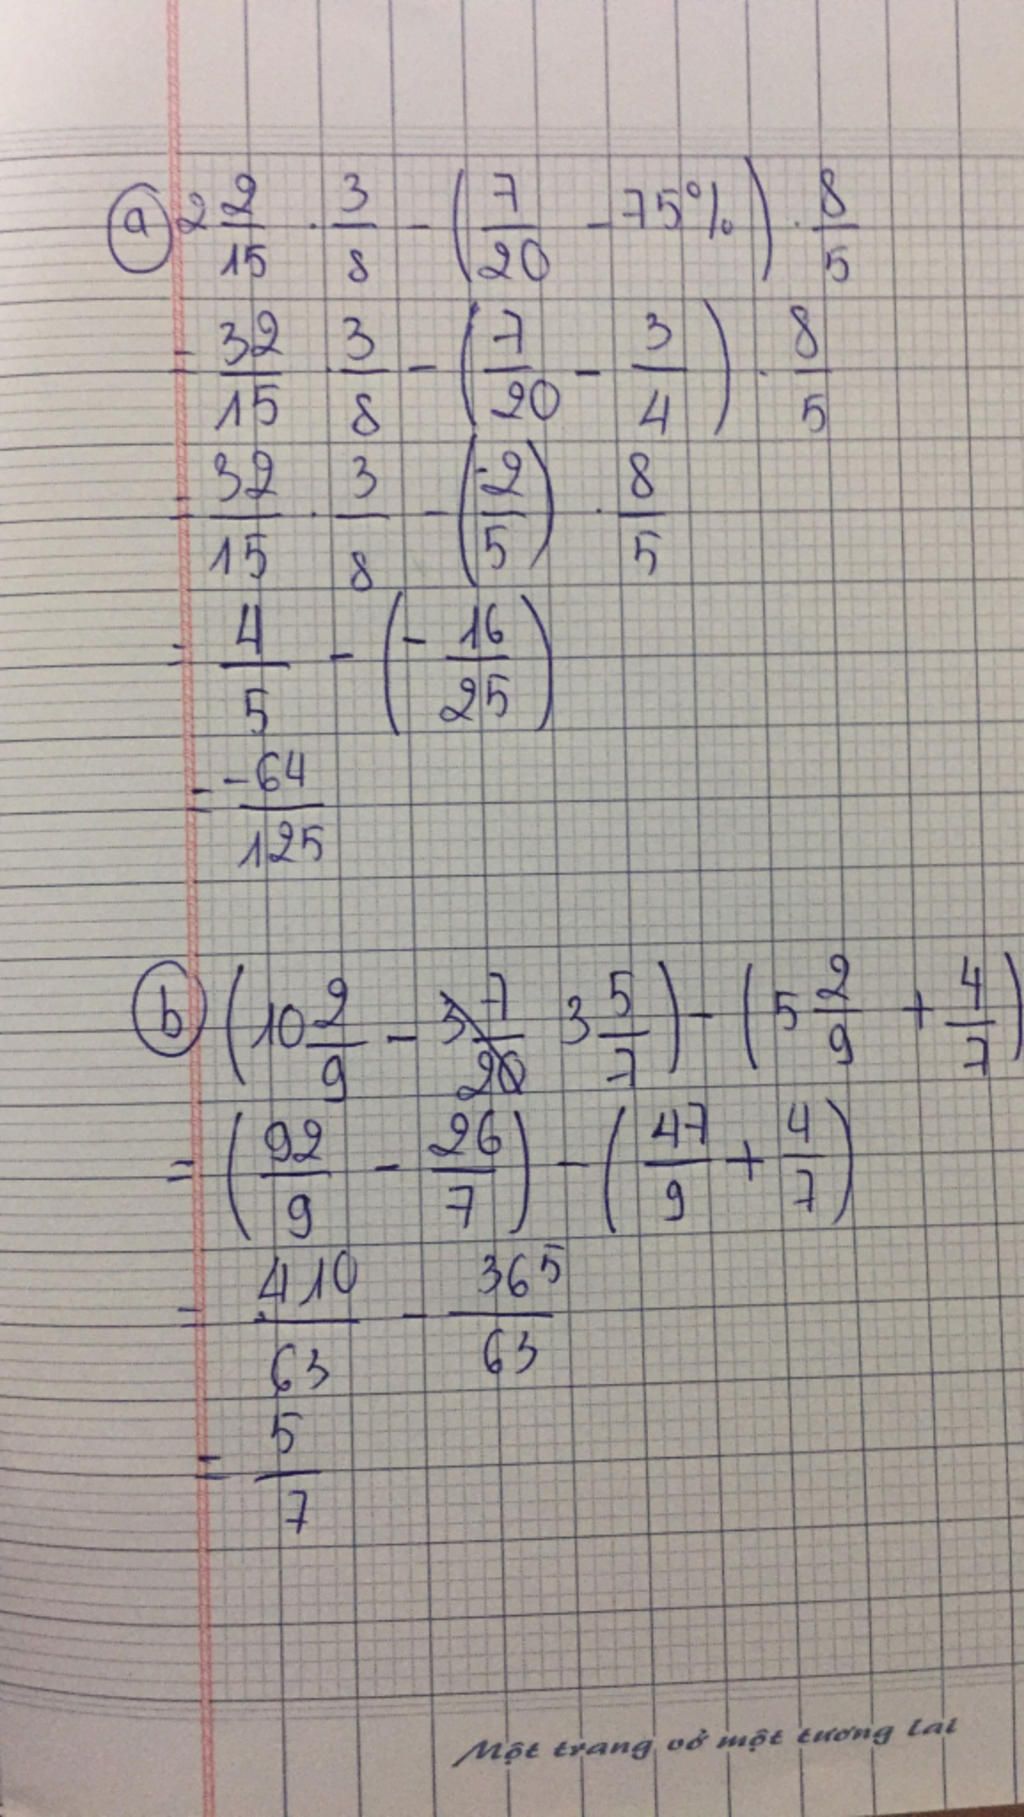 a) 2 2/15 · 3/8 - (7/20 - 75%) · 8/5
= 32/15 · 3/8 - (7/20 - 3/4) · 8/5
= 32/15 · 3/8 - (-2/5) · 8/5
= 4/5 - (- 16/25)
= -64/125
b) (10 2/9 - 3 7/20 3 5/7) - (5 2/9 + 4/7)
= (92/9 - 26/7) - (47/9 + 4/7)
= 410/63 - 365/63
= 5/7
Một trang vở một tương lai